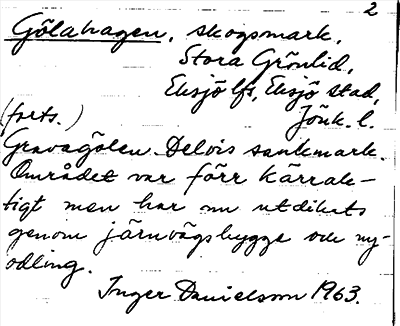 2
Gölahagen, skogsmark,
Stora Grönlid,
Eksjö lfs, Eksjö stad,
Jönk. l.
(forts.)
Gravagölen. Delvis sankmark.
Området var förr kärrak-
tigt men har nu utdikats
genom järnvägsbygge och ny-
odling.
Inger Danielsson 1963.